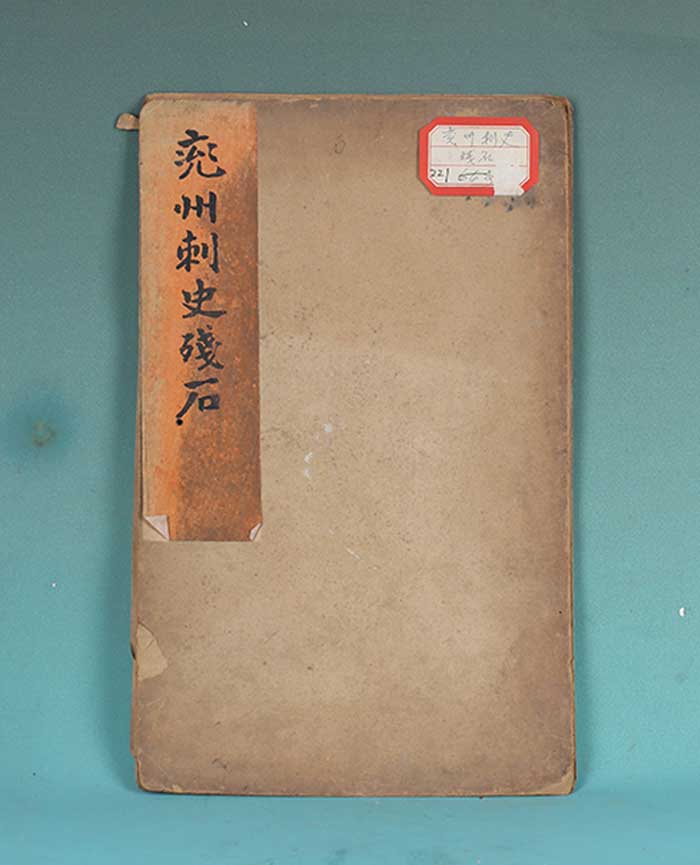 兖州刺史殘石
兖州刺史
残石
221